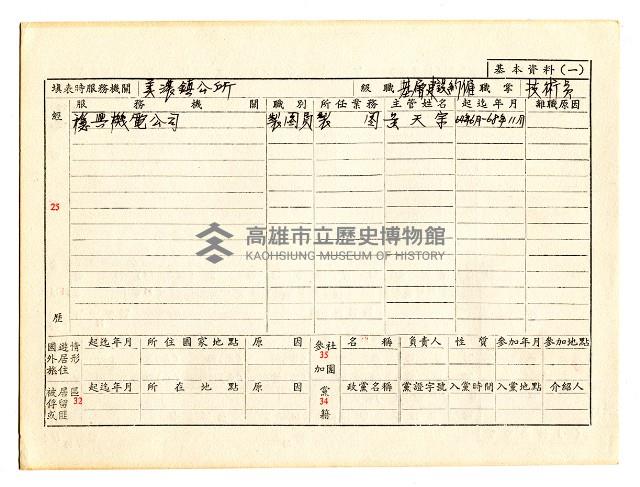 基本資料(一)
填表時服務機關 美濃鎮公所 級職 基層建設約僱 職掌 技術員
經歷 25
服務機關 職別 所任業務 主管姓名 起迄年月 離職原因
穩興機電公司 製圖員 製圖 吳天宗 年6月-68年11月
高雄市立歷史博物館
KAOHSIUNG MUSEUM OF HISTORY
國外旅遊居住情形 起迄年月 所住國家地點 原因 參加社團 35 名稱 負責人 性質 參加年月 參加地點
被俘或居留匪區 32 起迄年月 所在地點 原因 黨籍 34 政黨名稱 黨證字號 入黨時間 入黨地點 介紹人